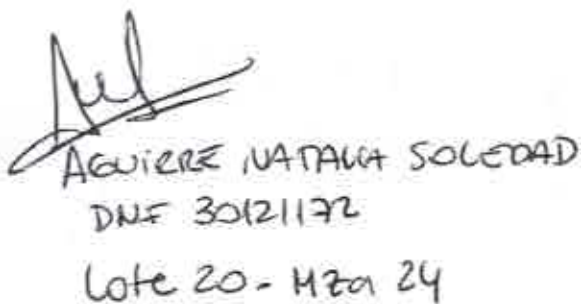 AGUIRRE NATALIA SOLEDAD
DNI 30121172
Lote 20 - Mza 24